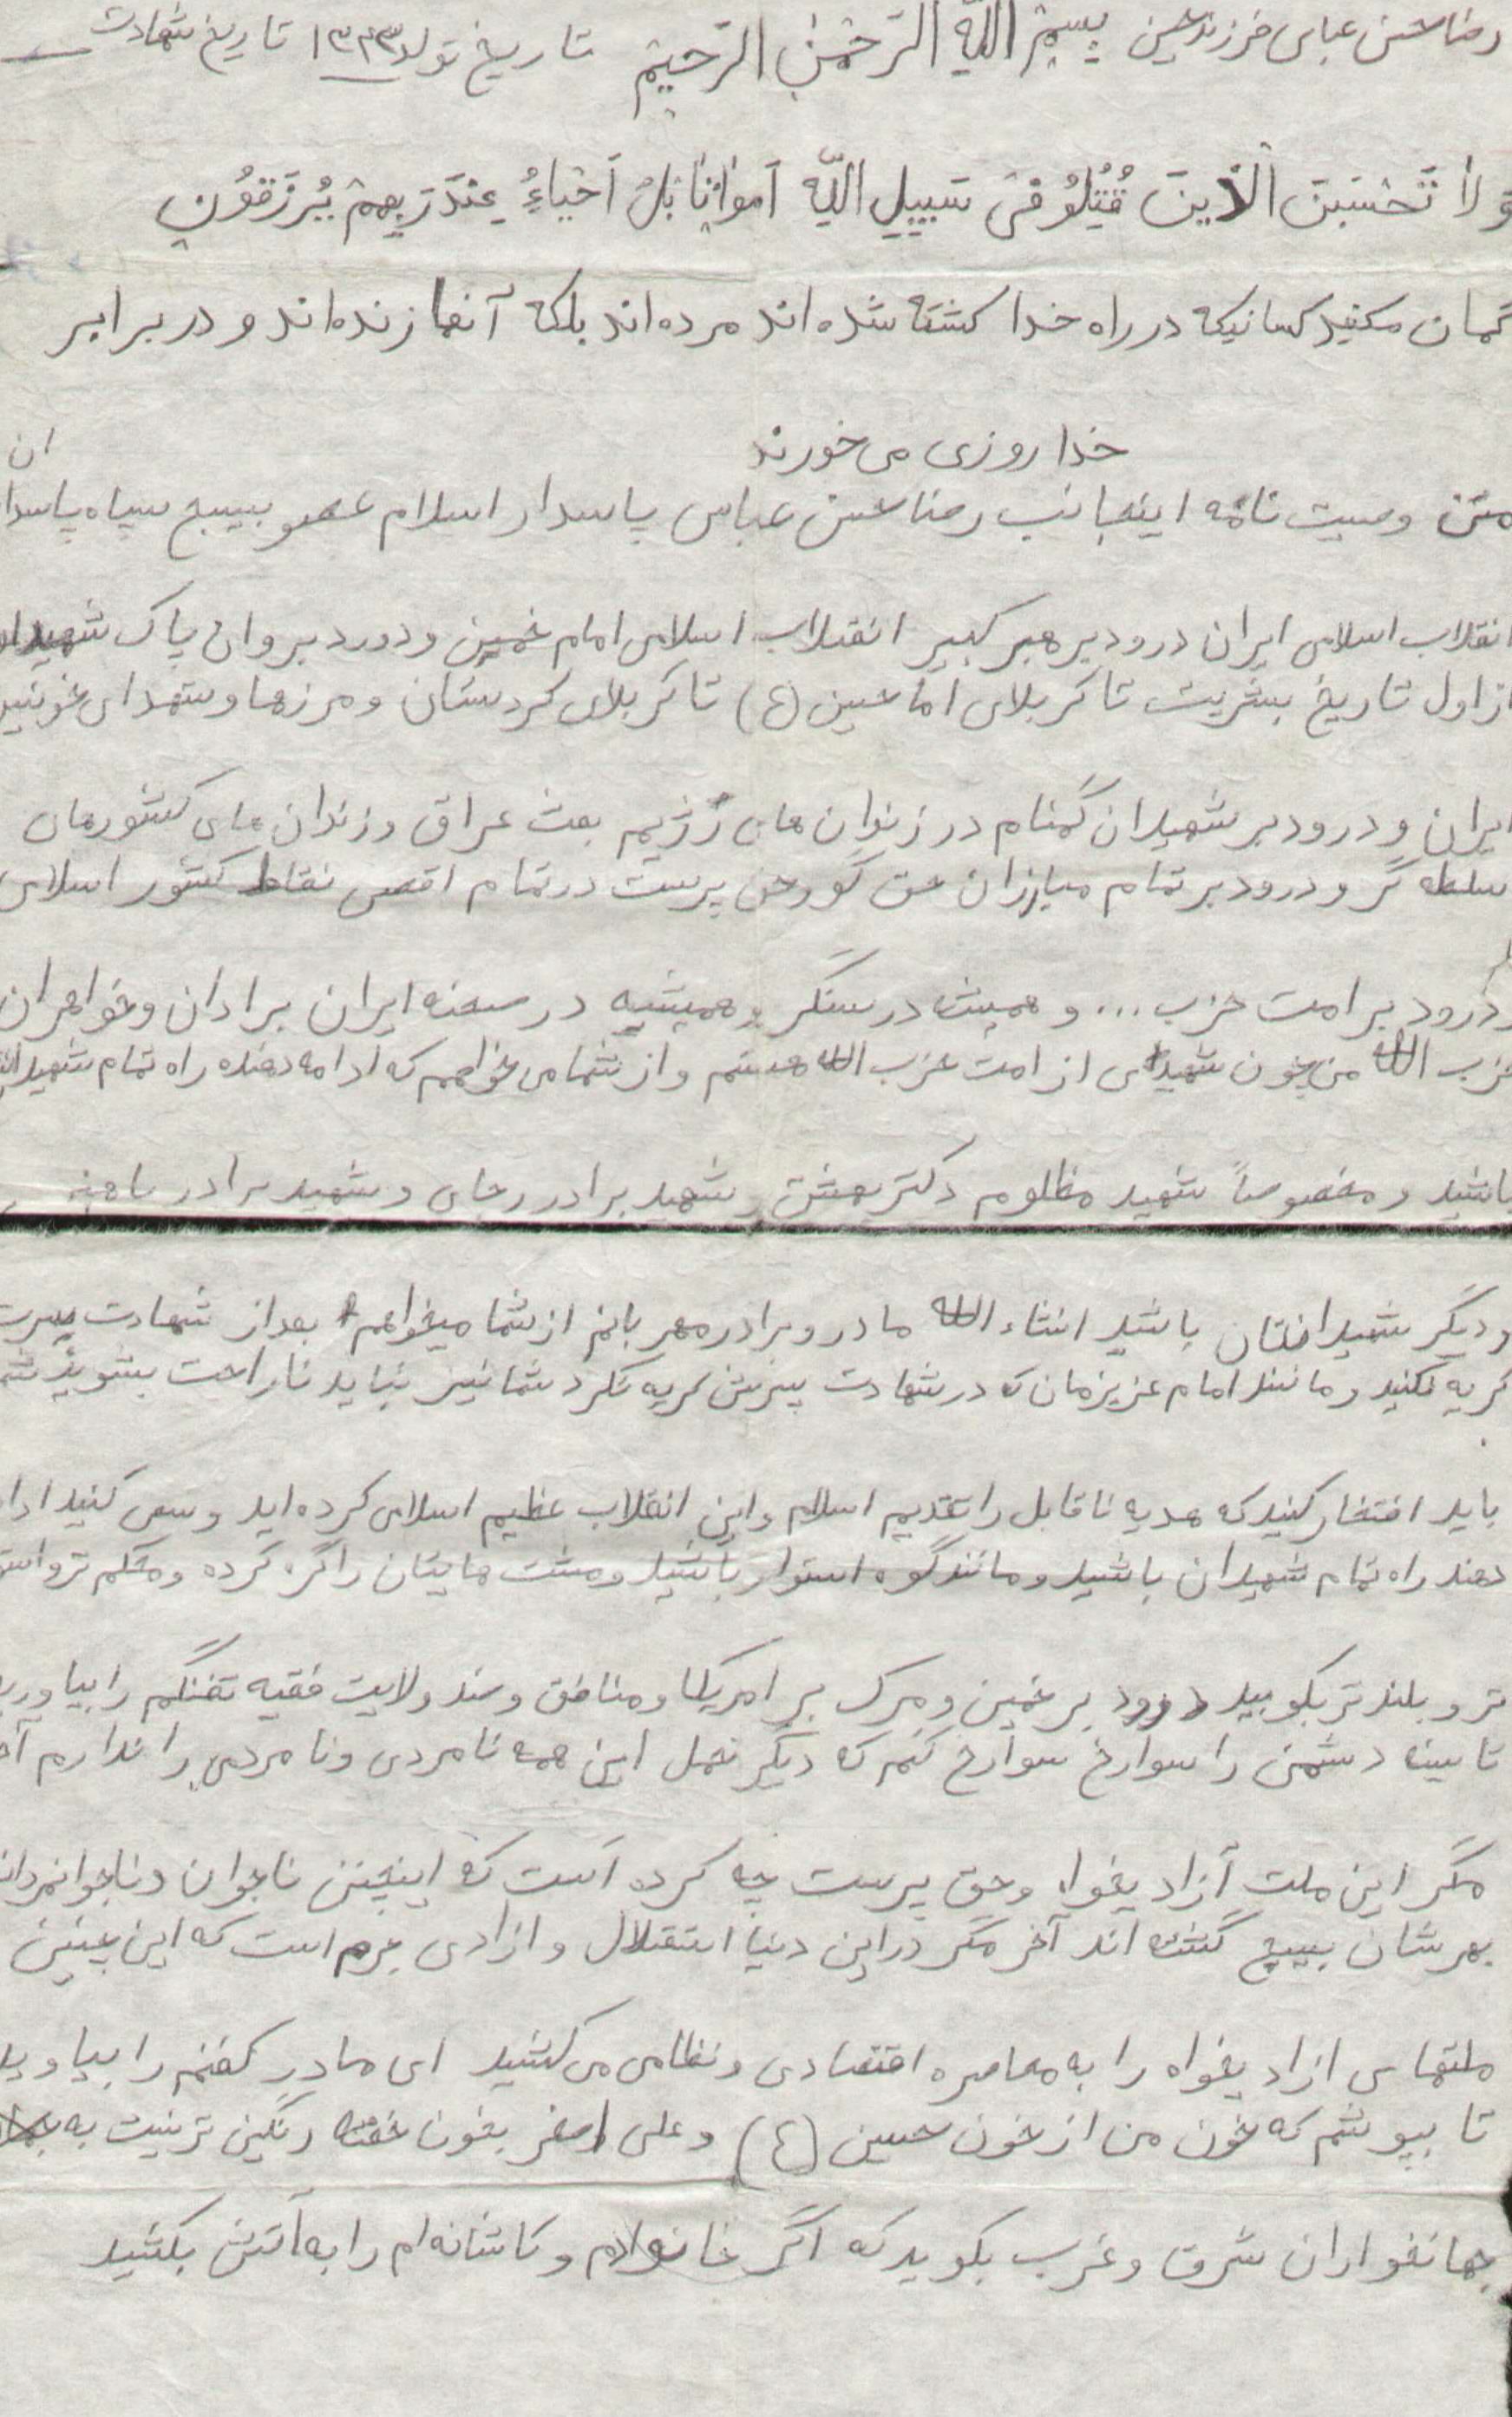 رضا حسن عباسی فرزند حسین بِسْمِ اللهِ الرَّحْمٰنِ الرَّحیمْ تاریخ تولد ۱۳۴۳ تاریخ شهادت
وَلاٰ تَحْسَبَنَ الْذّینَ قُتِلُو فیٖ سَبیٖلِ اللّهِ اَمواٰتٰا بَلْ اَحْیٰاءُ عِنْدَ رَبِهِمْ یُرْزَقُونِ
گمان مکنید کسانیکه در راه خدا کشته شده اند مرده اند بلکه آنها زنده اند و در برابر
خدا روزی می خورند
متن وصیت نامه اینجانب رضا حسن عباسی پاسدار اسلام عضو بسیج سپاه پاسداران
انقلاب اسلامی ایران درود بر رهبر کبیر انقلاب اسلامی امام خمینی و دورد بر وان پاک شهیدان
از اول تاریخ بشریت تا کربلای اما حسین (ع) تا کربلای کردستان و مرزها و شهدای خونین
ایران و درود بر شهیدان گمنام در زندان های رژیم بعث عراق و زندان های کشورهای
سلطه گر و درود بر تمام مبارزان حق گو و حق پرست در تمام اقصی نقاط کشور اسلامی
درود بر امت حزب ... و همیشه در سنگر و همیشیه در صحنه ایران برادان و خواهران
حزب الله من چون شهیدای از امت حزب الله هستم و از شما می خواهم که ادامه دهنده راه تمام شهیدان
باشید و مخصوصاً شهید مظلوم دکتر بهشتی و شهید برادر رجای و شهید برادر باهنر
و دیگر شهیدانتان باشید انشاء الله مادر و برادر مهربانم از شما میخواهم بعد از شهادت پسرت
گریه نکنید و مانند امام عزیزمان که در شهادت پسرش گریه نکرد شما نیز نباید ناراحت بشوید
باید افتخار کنید که هدیه ناقابل را تقدیم اسلام و این انقلاب عظیم اسلامی کرده اید و سعی کنید ادا
دهند راه تمام شهیدان باشید و مانند گوه استوار باشید و مشت هایتان را گره کرده و محکم تر و استو
تر و بلند تر بگویید درود بر خمینی و مرگ بر امریکا و منافق و ضد ولایت فقیه تفنگم را بیاورید
تا سینه دشمن را سوارخ سوارخ کنم که دیگر تحمل این همه نامردی و نامردمی را ندارم
مگر این ملت آزادیخواه و حق پرست چه کرده است که اینچنین ناجوان و ناجوانمردانه
بهرشان بسیج گشته اند آخر مگر در این دنیا استقلال و ازادی جرم است که این چنین
ملتهای ازادیخواه را به محاصره اقتصادی و نظامی می کشید ای مادر کفنم را بیاوید
تا بپوشم که خون من از خون حسین (ع) و علی اصغر بخون خفته رنگین تر نیست به
جهانخواران شرق و غرب بگوید که اگر خانوادم و کاشانه ام را به آتش بکشید